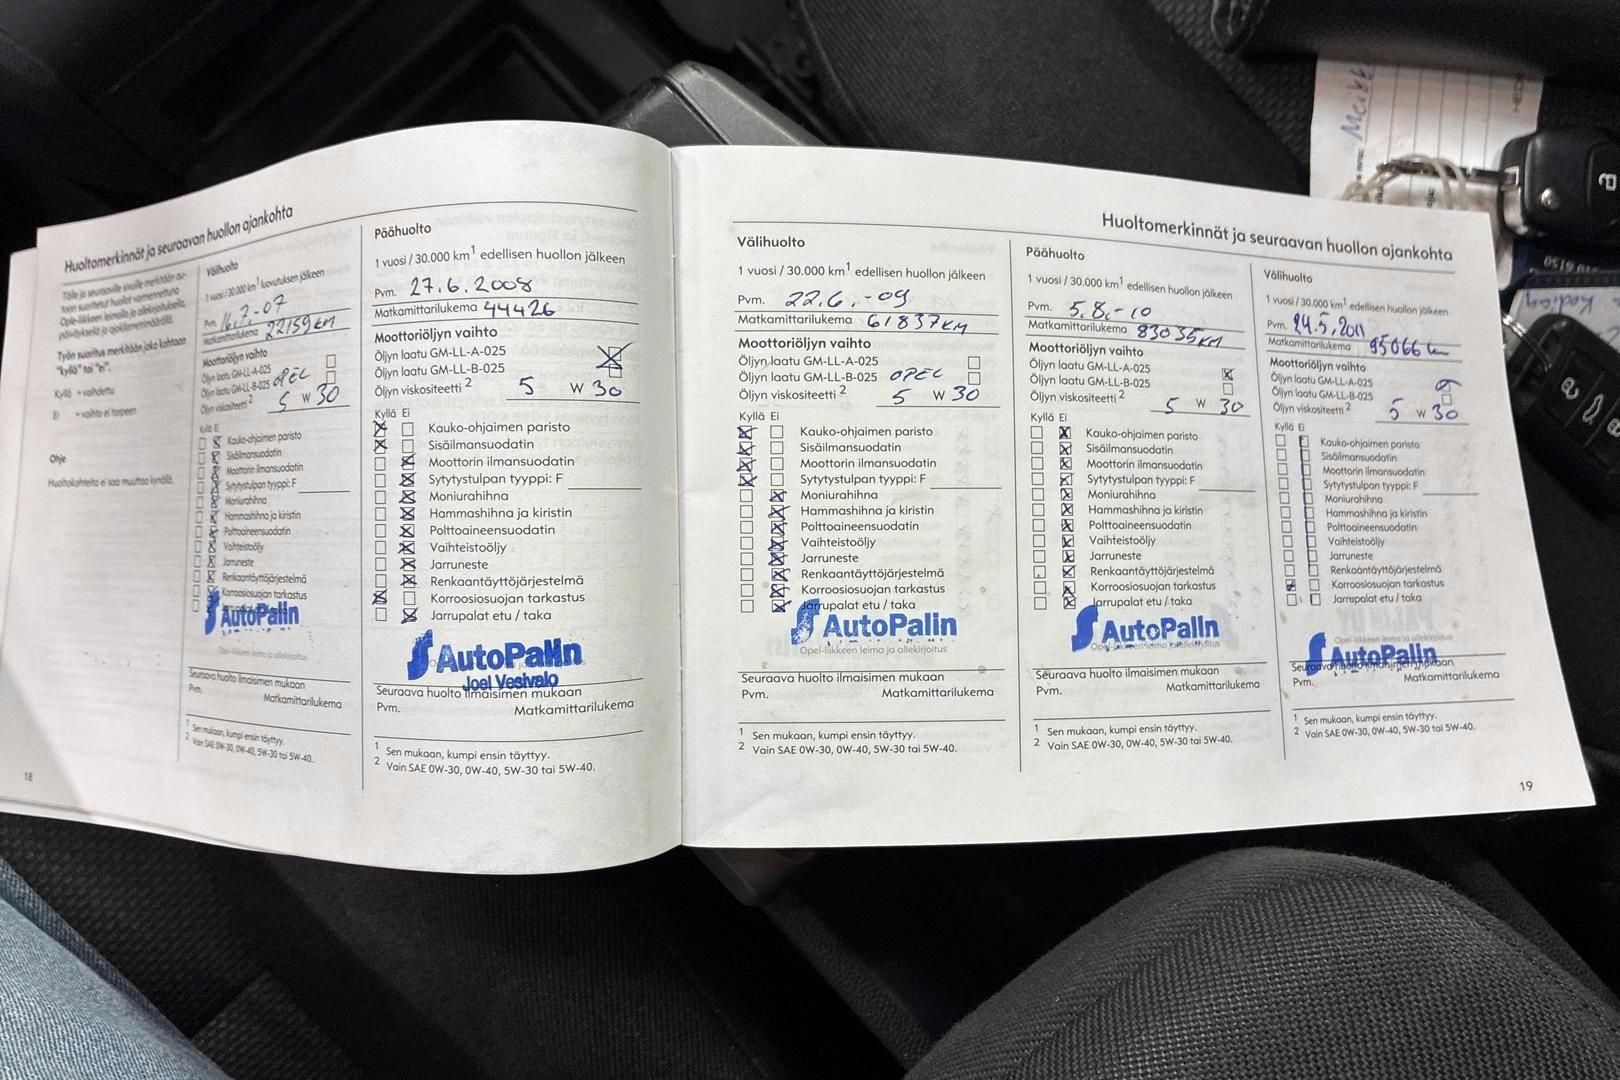 Huoltomerkinnät ja seuraavan huollon ajankohta
Tälle ja seuraaville sivuille merkitään au-
toon suoritetut huollot varmennettuna
Opel-liikkeen leimalla ja allekirjoituksella,
päiväyksellä ja ajokilometrimäärällä.
Työn suoritus merkitään joka kohtaan
"kyllä" tai "ei".
Kyllä = vaihdettu
Ei = vaihto ei tarpeen
Ohje
Huoltokohteita ei saa muuttaa kynällä.
18
Välihuolto
1 vuosi / 30.000 km1 luovutuksen jälkeen
Pvm. 16.7.-07
Matkamittarilukema 22159 KM
Moottoriöljyn vaihto
Öljyn laatu GM-LL-A-025
Öljyn laatu GM-LL-B-025 OPEL
Öljyn viskositeetti 2 5 W 30
Kyllä Ei
Kauko-ohjaimen paristo
Sisäilmansuodatin
Moottorin ilmansuodatin
Sytytystulpan tyyppi: F
Moniurahihna
Hammashihna ja kiristin
Polttoaineensuodatin
Vaihteistoöljy
Jarruneste
Renkaantäyttöjärjestelmä
Korroosiosuojan tarkastus
AutoPalin
Opel-liikkeen leima ja allekirjoitus
Seuraava huolto ilmaisimen mukaan
Pvm. Matkamittarilukema
1 Sen mukaan, kumpi ensin täyttyy.
2 Vain SAE 0W-30, 0W-40, 5W-30 tai 5W-40.
Päähuolto
1 vuosi / 30.000 km1 edellisen huollon jälkeen
Pvm. 27.6.2008
Matkamittarilukema 44426
Moottoriöljyn vaihto
Öljyn laatu GM-LL-A-025
Öljyn laatu GM-LL-B-025
Öljyn viskositeetti 2 5 W 30
Kyllä Ei
Kauko-ohjaimen paristo
Sisäilmansuodatin
Moottorin ilmansuodatin
Sytytystulpan tyyppi: F
Moniurahihna
Hammashihna ja kiristin
Polttoaineensuodatin
Vaihteistoöljy
Jarruneste
Renkaantäyttöjärjestelmä
Korroosiosuojan tarkastus
Jarrupalat etu / taka
AutoPalin
Joel Vesivalo
Seuraava huolto ilmaisimen mukaan
Pvm. Matkamittarilukema
1 Sen mukaan, kumpi ensin täyttyy.
2 Vain SAE 0W-30, 0W-40, 5W-30 tai 5W-40.
Huoltomerkinnät ja seuraavan huollon ajankohta
Välihuolto
1 vuosi / 30.000 km1 edellisen huollon jälkeen
Pvm. 22.6.-09
Matkamittarilukema 61837KM
Moottoriöljyn vaihto
Öljyn laatu GM-LL-A-025
Öljyn laatu GM-LL-B-025 OPEL
Öljyn viskositeetti 2 5 W 30
Kyllä Ei
Kauko-ohjaimen paristo
Sisäilmansuodatin
Moottorin ilmansuodatin
Sytytystulpan tyyppi: F
Moniurahihna
Hammashihna ja kiristin
Polttoaineensuodatin
Vaihteistoöljy
Jarruneste
Renkaantäyttöjärjestelmä
Korroosiosuojan tarkastus
Jarrupalat etu / taka
AutoPalin
Opel-liikkeen leima ja allekirjoitus
Seuraava huolto ilmaisimen mukaan
Pvm. Matkamittarilukema
1 Sen mukaan, kumpi ensin täyttyy.
2 Vain SAE 0W-30, 0W-40, 5W-30 tai 5W-40.
Päähuolto
1 vuosi / 30.000 km1 edellisen huollon jälkeen
Pvm. 5.8.-10
Matkamittarilukema 83035KM
Moottoriöljyn vaihto
Öljyn laatu GM-LL-A-025
Öljyn laatu GM-LL-B-025
Öljyn viskositeetti 2 5 W 30
Kyllä Ei
Kauko-ohjaimen paristo
Sisäilmansuodatin
Moottorin ilmansuodatin
Sytytystulpan tyyppi: F
Moniurahihna
Hammashihna ja kiristin
Polttoaineensuodatin
Vaihteistoöljy
Jarruneste
Renkaantäyttöjärjestelmä
Korroosiosuojan tarkastus
Jarrupalat etu / taka
AutoPalin
Opel-liikkeen leima ja allekirjoitus
Seuraava huolto ilmaisimen mukaan
Pvm. Matkamittarilukema
1 Sen mukaan, kumpi ensin täyttyy.
2 Vain SAE 0W-30, 0W-40, 5W-30 tai 5W-40.
Välihuolto
1 vuosi / 30.000 km1 edellisen huollon jälkeen
Pvm. 24.5.2011
Matkamittarilukema 95066 km
Moottoriöljyn vaihto
Öljyn laatu GM-LL-A-025
Öljyn laatu GM-LL-B-025
Öljyn viskositeetti 2 5 W 30
Kyllä Ei
Kauko-ohjaimen paristo
Sisäilmansuodatin
Moottorin ilmansuodatin
Sytytystulpan tyyppi: F
Moniurahihna
Hammashihna ja kiristin
Polttoaineensuodatin
Vaihteistoöljy
Jarruneste
Renkaantäyttöjärjestelmä
Korroosiosuojan tarkastus
Jarrupalat etu / taka
Opel-liikkeen leima ja allekirjoitus
AutoPalin
Seuraava huolto ilmaisimen mukaan
Pvm. Matkamittarilukema
1 Sen mukaan, kumpi ensin täyttyy.
2 Vain SAE 0W-30, 0W-40, 5W-30 tai 5W-40.
19